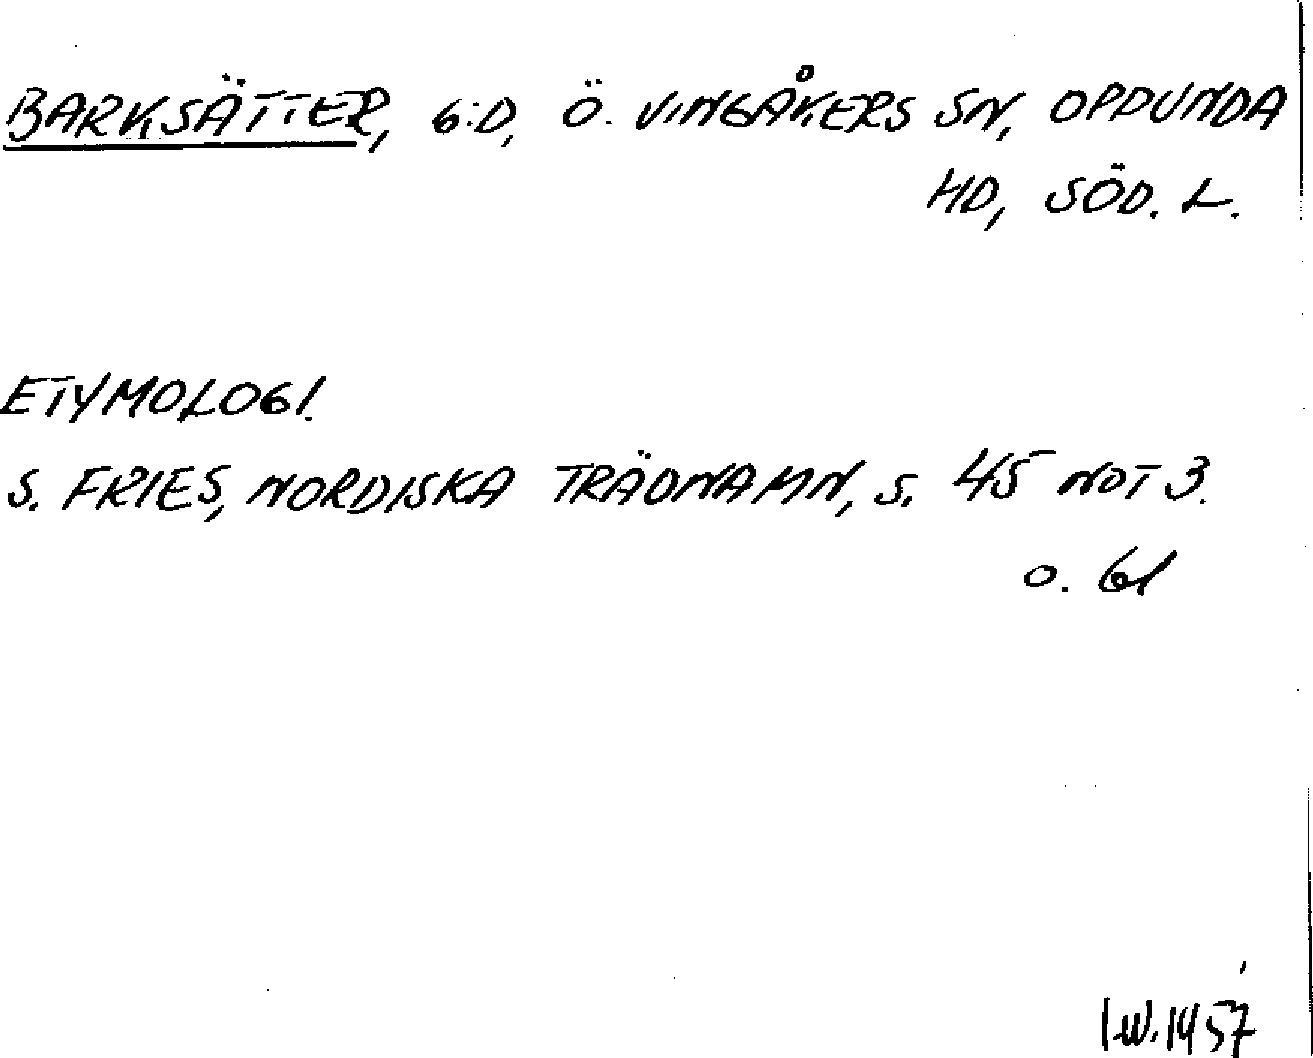 BARKSÄTTER, G:D, Ö. VINGÅKERS SN, OPPUNDA
HD, SÖD. L.
ETYMOLOGI.
S. FRIES, NORDISKA TRÄDNAMN, S. 45 NOT 3.
O. 61
I.W. 1957